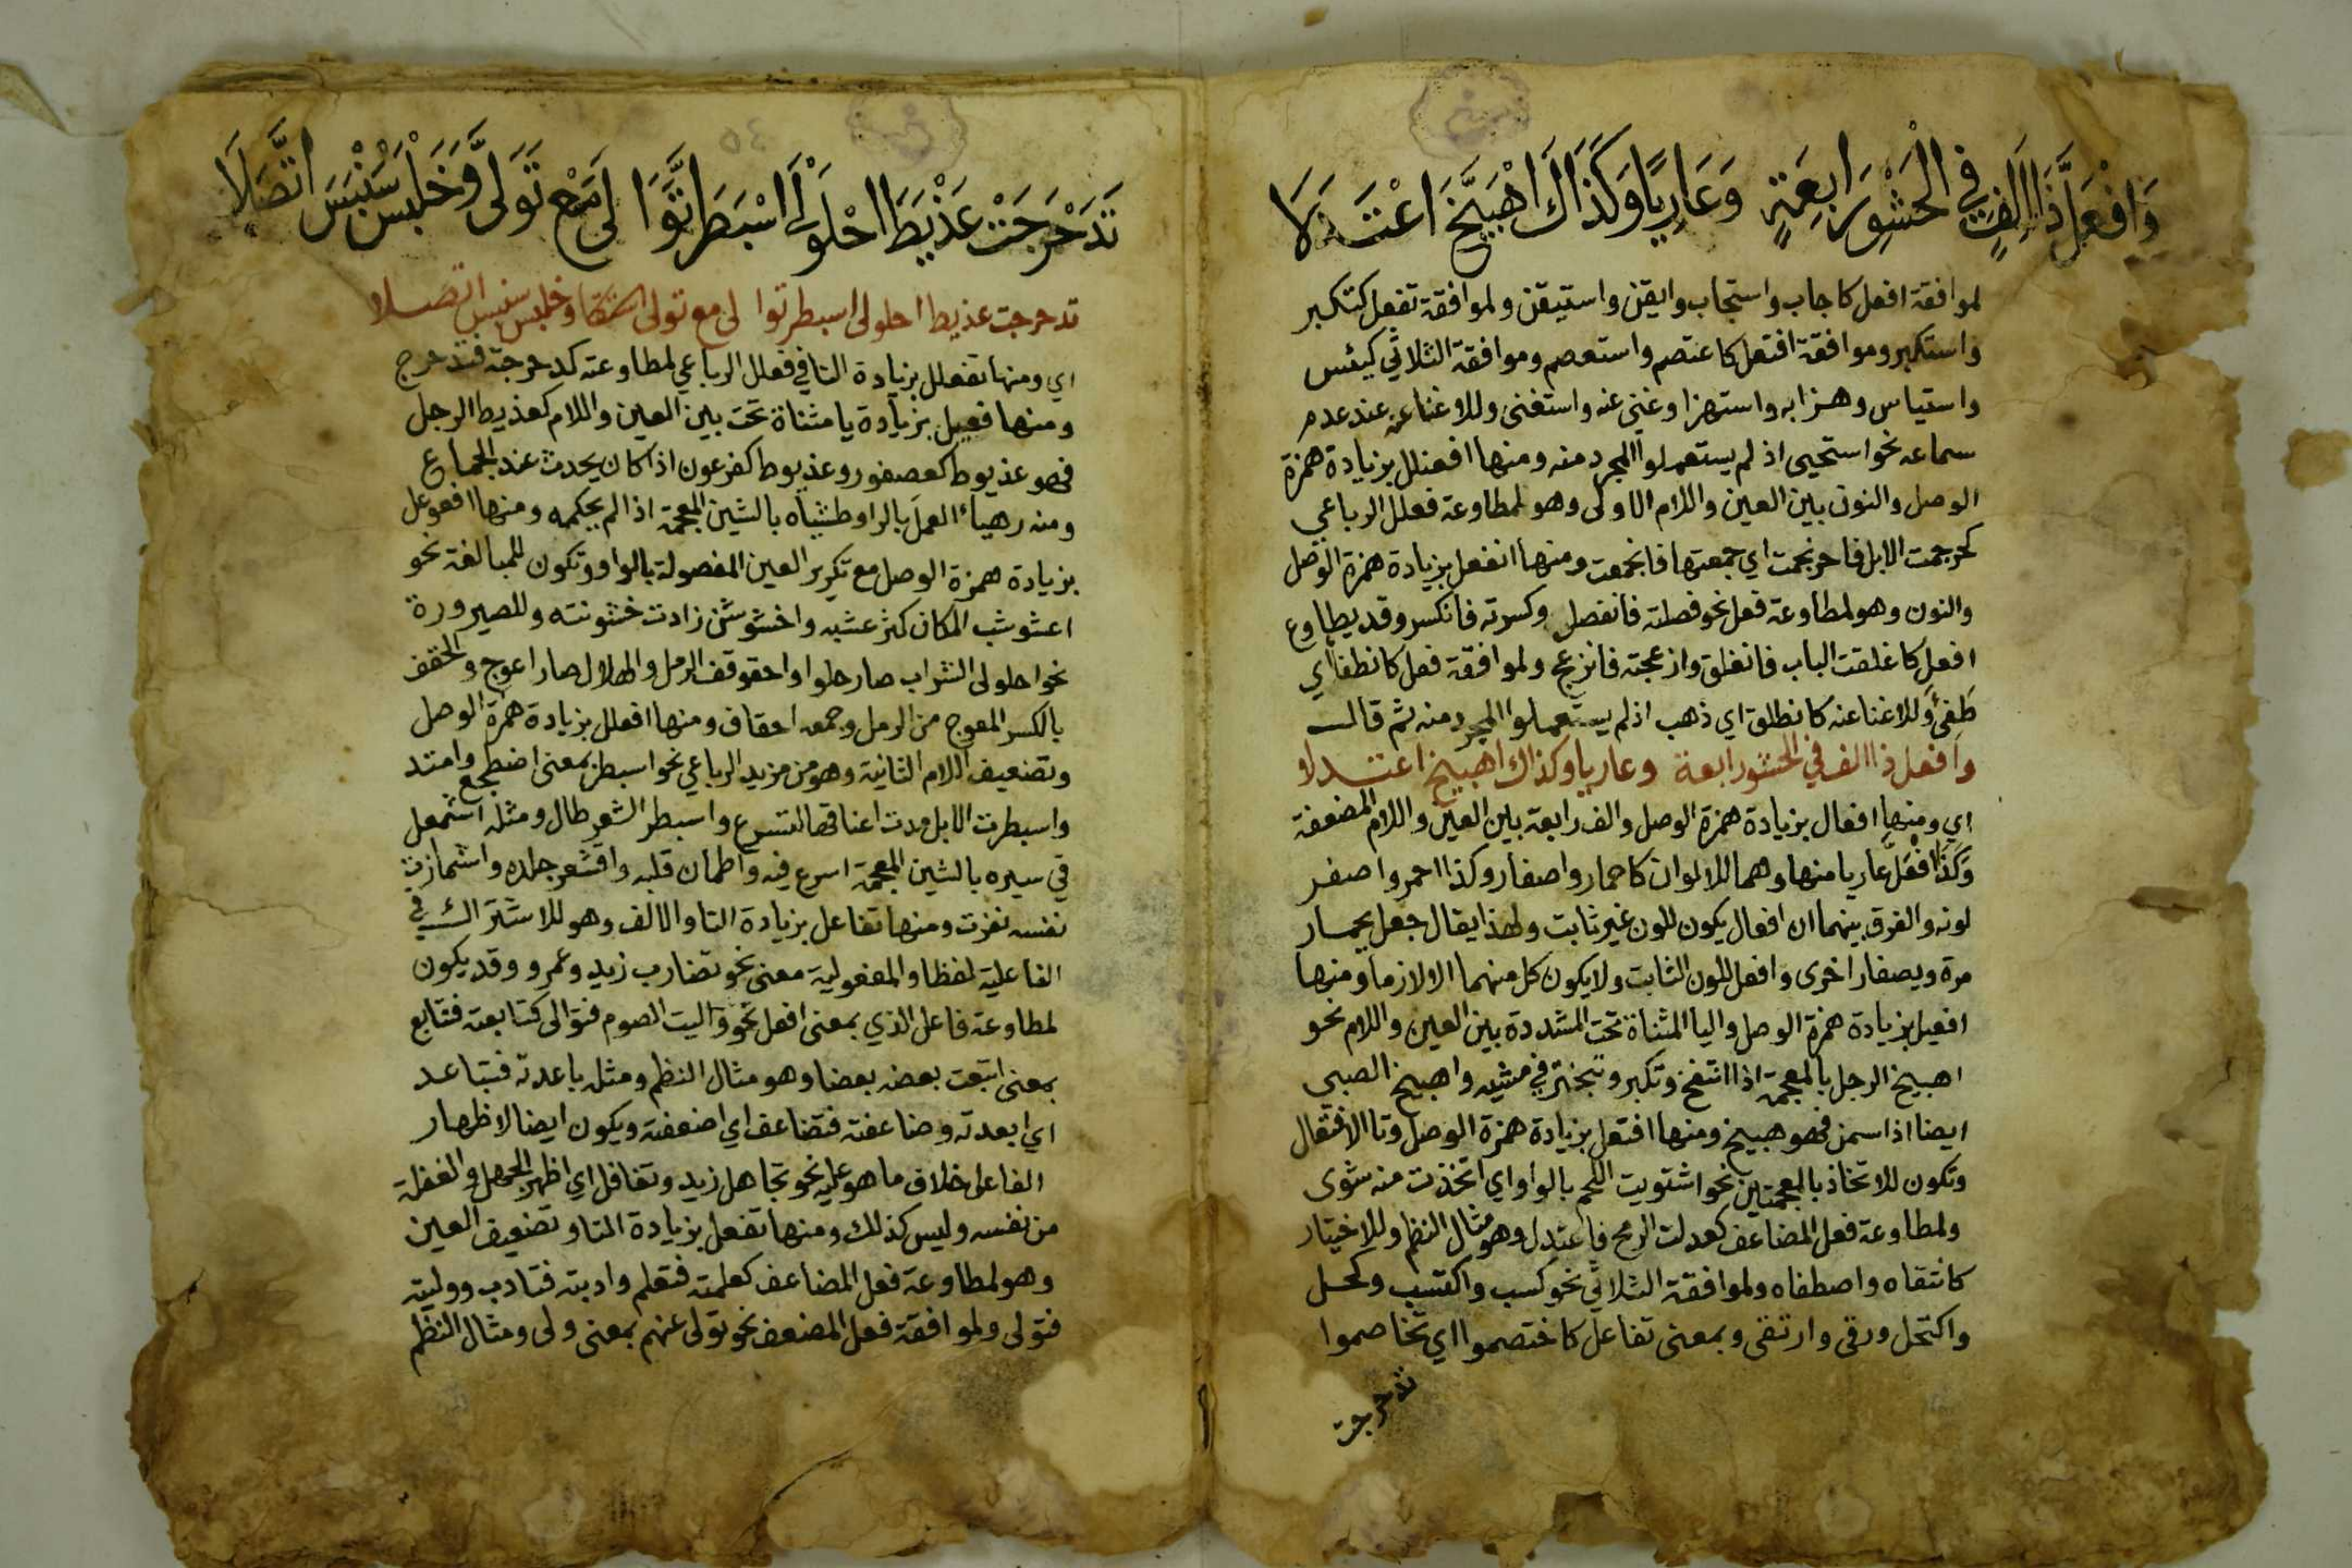 وَافْعَلَّ ذَا اَلِفٍ فِي الْحَشْوِ رَابِعَةٍ وَعَارِيًا وَكَذَاكَ اهْبَيَّخَ اعْتَدَلَا
لموافقة افعل كاجاب واستجاب وايقن واستيقن ولموافقة تفعل كتكبر
واستكبر وموافقة افتعل كاعتصم واستعصم وموافقة الثلاثي كيئس
واستياس وهزا به واستهزا وغني عنه واستغنى وللاغنا عنه عند عدم
سماعه نحو استحيى اذ لم يستعملوا المجرد منه ومنها افعنلل بزيادة همزة
الوصل والنون بين العين واللام الاولى وهو لمطاوعة فعلل الرباعي
كحرجمت الابل فاحرنجمت اي جمعتها فانجمعت ومنها انفعل بزيادة همزة الوصل
والنون وهو لمطاوعة فعل نحو فصلته فانفصل وكسرته فانكسر وقد يطاوع
افعل كاغلقت الباب فانغلق وازعجته فانزعج ولموافقة فعل كانطفا اي
طَفِئَ وللاغنا عنه كانطلق اي ذهب اذ لم يستعملوا المجرد منه ثم قال
وافعل ذا الف في الحشو رابعة وعاريا وكذاك اهبيخ اعتدلا
اي ومنها افعال بزيادة همزة الوصل والف رابعة بين العين واللام المضعفة
وَكَذَا افْعَلَّ عاريا منها وهما للالوان كاحمار واصفار وكذا احمر واصفر
لونه والفرق بينهما ان افعال يكون للون غير ثابت ولهذا يقال جعل يحمار
مرة ويصفار اخرى وافعل للون الثابت ولا يكون كل منهما الا لازما ومنها
افعيل بزيادة همزة الوصل واليا المثناة تحت المشددة بين العين واللام نحو
اهبيخ الرجل بالمعجمة اذا انتفخ وتكبر وتبختر في مشيه واهبيخ الصبي
ايضا اذا سمن فهو هبيخ ومنها افتعل بزيادة همزة الوصل وتا الافتعال
وتكون للاتخاذ بالمعجمتين نحو اشتويت اللحم بالواو اي اتخذت منه شوى
ولمطاوعة فعل المضاعف كعدلت الرمح فاعتدل وهو مثال النظم وللاختيار
كانتقاه واصطفاه ولموافقة الثلاثي نحو كسب واكتسب وكحل
واكتحل ورقى وارتقى وبمعنى تفاعل كاختصموا اي تخاصموا
تدحرجت
تَدَحْرَجَتْ عَذْيَطَ احْلَوْلَى اسْبَطَرَّ تَوَا لَى مَعْ تَوَلَّى وَخَلْبَسَ سَنْبَسَ اتَّصَلَا
تدحرجت عذيط احلولى اسبطر توا لى مع تولى وخلبس سنبس اتصلا
اي ومنها تفعلل بزيادة التا في فعلل الرباعي لمطاوعته كدحرجته فتدحرج
ومنها فعيل بزيادة يا مثناة تحت بين العين واللام كعذيط الرجل
فهو عذيوط كعصفور وعذيوط كفرعون اذا كان يحدث عند الجماع
ومنه رهيأ العمل بالرا وطشيأه بالشين المعجمة اذا لم يحكمه ومنها افعوعل
بزيادة همزة الوصل مع تكرير العين المفصولة بالواو وتكون للمبالغة نحو
اعشوشب المكان كثر عشبه واخشوشن زادت خشونته وللصيرورة
نحو احلولى الشراب صار حلوا واحقوقف الرمل والهلال صار اعوج والحقف
بالكسر المعوج من الرمل وجمعه احقاف ومنها افعلل بزيادة همزة الوصل
وتضعيف اللام الثانية وهو من مزيد الرباعي نحو اسبطر بمعنى اضطجع وامتد
واسبطرت الابل مدت اعناقها لتسرع واسبطر الشعر طال ومثله اشمعل
في سيره بالشين المعجمة اسرع فيه واطمان قلبه واقشعر جلده واشمازت
نفسه نفرت ومنها تفاعل بزيادة التا والالف وهو للاشتراك في
الفاعلية لفظا والمفعولية معنى نحو تضارب زيد وعمرو وقد يكون
لمطاوعة فاعل الذي بمعنى افعل نحو واليت الصوم فتوالى كتابعته فتتابع
بمعنى اتبعت بعضه بعضا وهو مثال النظم ومثله باعدته فتباعد
اي ابعدته وضاعفته فتضاعف اي اضعفته ويكون ايضا لاظهار
الفاعل خلاف ما هو عليه نحو تجاهل زيد وتغافل اي اظهر الجهل والغفلة
من نفسه وليس كذلك ومنها تفعل بزيادة التا وتضعيف العين
وهو لمطاوعة فعل المضاعف كعلمته فتعلم وادبته فتادب ووليته
فتولى ولموافقة فعل المضعف نحو تولى عنهم بمعنى ولى ومثال النظم